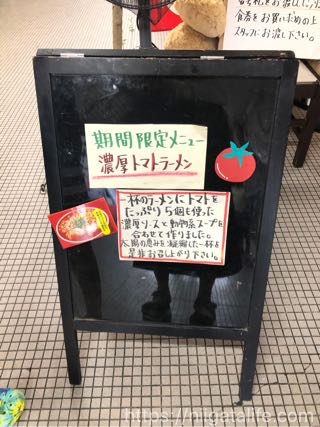 食券をお買い求めの上
スタッフにお渡し下さい。
期間限定メニュー
濃厚トマトラーメン
一杯のラーメンにトマトを
たっぷり5個も使った
濃厚ソースと動物系スープを
合わせて作りました。
太陽の恵みを凝縮した一杯を
是非お召し上がり下さい。
https://niigatalife.com